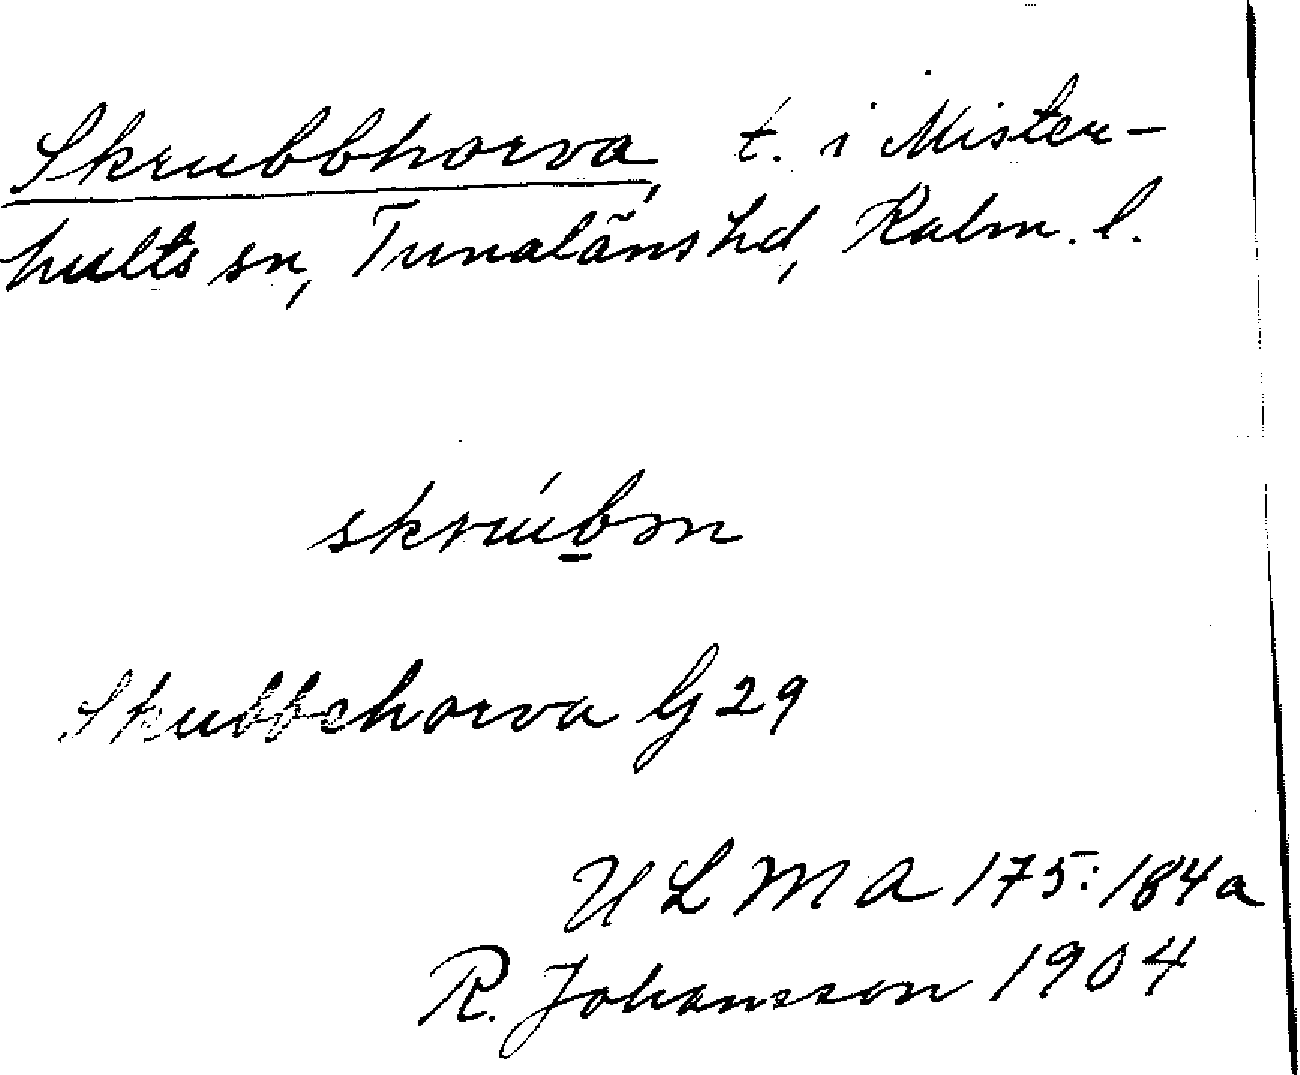 Skrubbhorva, t. i Mister-
hults sn, Tunaläns hd, Kalm. l.
skrúbən
Skubbehorva G 29
ULMA 175:184a
R. Johansson 1904